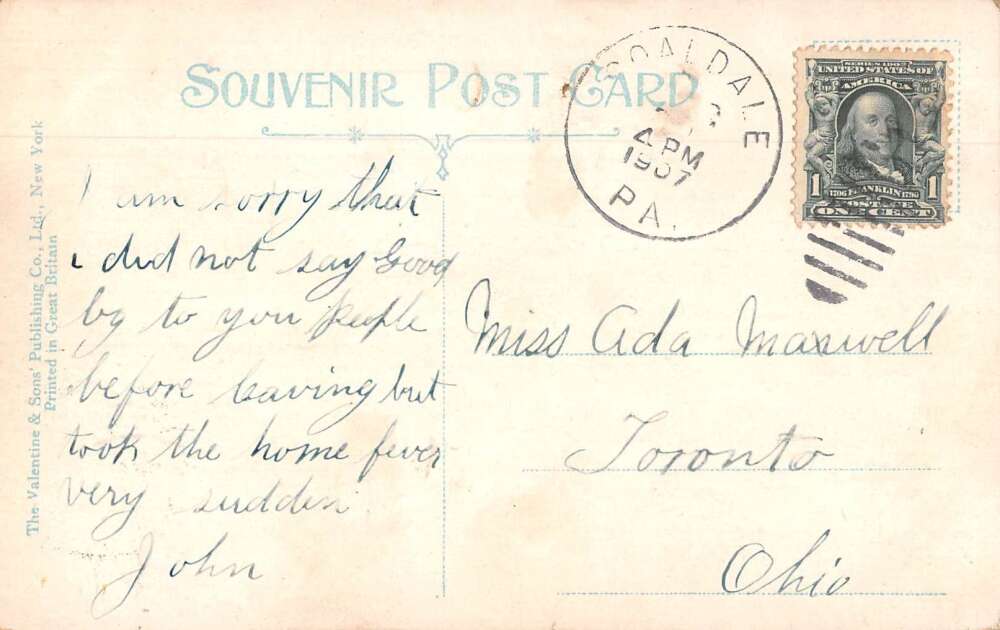 SOUVENIR POST CARD
COALDALE
4 PM
1907
PA.
SERIES 1902
UNITED STATES OF
AMERICA
1 1706 FRANKLIN 1790 1
POSTAGE
ONE CENT
The Valentine & Sons' Publishing Co., Ltd., New York
Printed in Great Britain
I am sorry that
i did not say Good
by to you people
before leaving but
took the home fever
very sudden
John
Miss Ada Maxwell
Toronto
Ohio